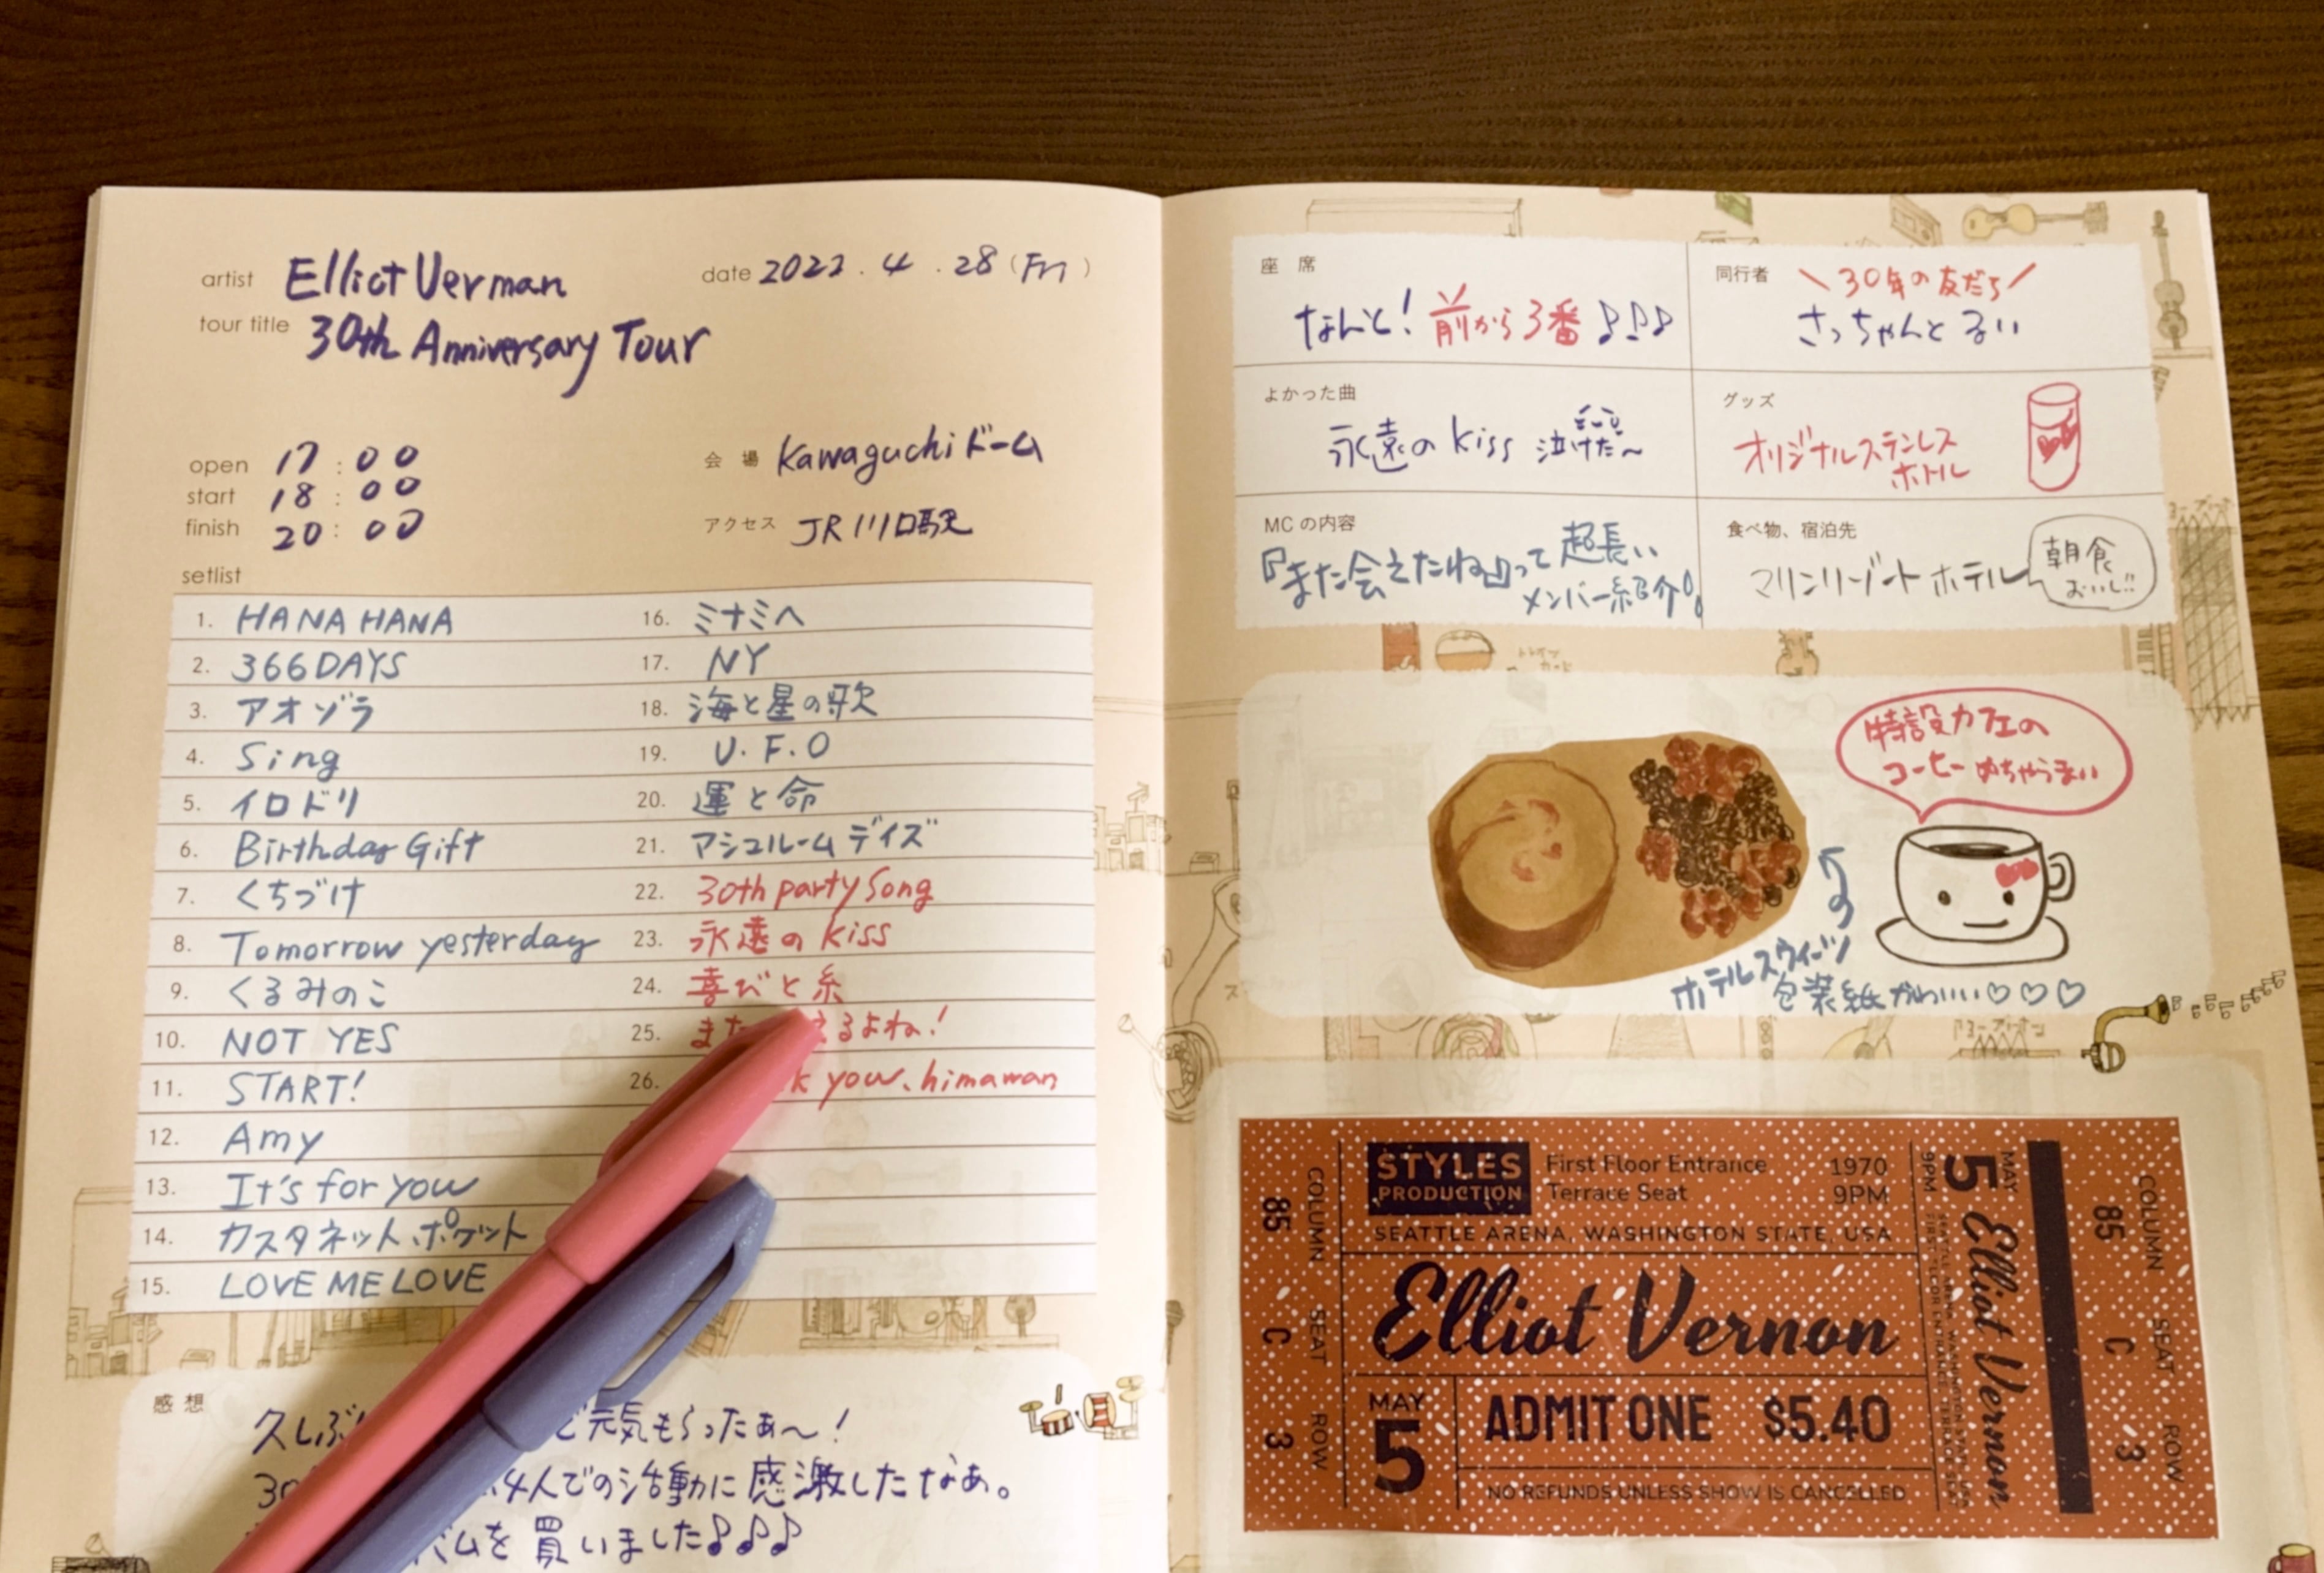 artist Elliot Verman
date 2022.4.28(Fri)
tour title 30th Anniversary Tour
open 17:00
start 18:00
finish 20:00
会 場 Kawaguchiドーム
アクセス JR川口駅
setlist
1. HANA HANA
2. 366DAYS
3. アオゾラ
4. Sing
5. イロドリ
6. Birthday Gift
7. くちづけ
8. Tomorrow yesterday
9. くるみのこ
10. NOT YES
11. START!
12. Amy
13. It's for you
14. カスタネット、ポケット
15. LOVE ME LOVE
16. ミナミへ
17. NY
18. 海と星の歌
19. U.F.O
20. 運と命
21. マシュルームデイズ
22. 30th party Song
23. 永遠の kiss
24. 喜びと糸
25. また えるよね!
26. k you、himawan
感 想
久しぶり で元気もらったぁ〜!
30 4人での活動に感激したなあ。
バムを買いました♪♪♪
座 席
なんと! 前から3番 ♪♪♪
同行者
\30年の友だち/
さっちゃんと るい
よかった曲
永遠の kiss 泣けた〜
グッズ
オリジナルステンレス
ボトル
MCの内容
『また会えたね』って 超長い
メンバー紹介!
食べ物、宿泊先
マリンリゾートホテル
朝食
おいし!!
特設カフェの
コーヒーめちゃうまい
ホテルスウィーツ
包装紙かわいい♡♡♡
COLUMN 85 SEAT C ROW 3
STYLES
PRODUCTION
First Floor Entrance
Terrace Seat
1970
9PM
SEATTLE ARENA, WASHINGTON STATE, USA
Elliot Vernon
MAY
5
ADMIT ONE $5.40
NO REFUNDS UNLESS SHOW IS CANCELLED
MAY 5 9PM
Elliot Vernon
COLUMN 85 SEAT C ROW 3